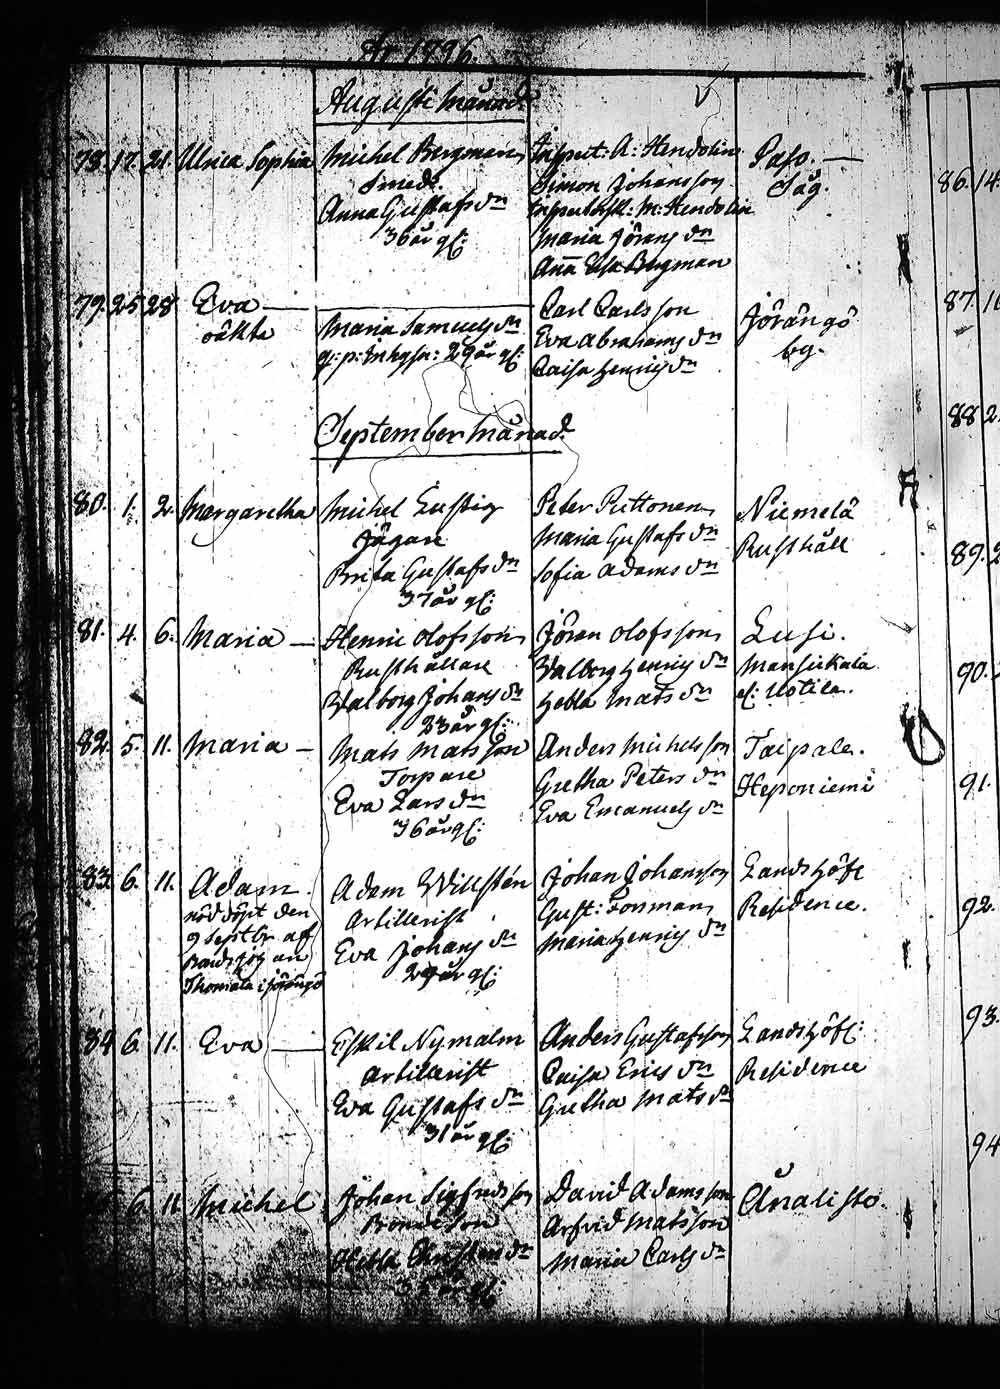 År 1796.
Augusti månad.
78. 17. 21. Ulrica Sophia
Michel Bergman
Smed.
Anna Gustafs dn
36 år gl:
Inspect: A: Hendolin
Simon Johansson
M: Hendolin
Maria Jörans dn
Anna Bergman
Paso.
Såg.
79. 25 28 Eva
oäkta
Maria Samuels dn
29 år gl:
Carl Carlsson
Eva Abrahams dn
Caisa Henrics dn
Jöröngö
by.
September månad.
80. 1. 2. Margaretha
Michel Lustig
Jägare
Brita Gustafs dn
37 år gl:
Peter Puttonen
Maria Gustafs dn
Sofia Adams dn
Niemelä
Rusthåll
81. 4. 6. Maria
Henric Olofsson
Rusthållare
Valborg Johans dn
23 år gl:
Jöran Olofsson
Valborg Henrics dn
Hebla Mats dn
Lusi.
Mansikkala
82. 5. 11. Maria
Mats Matsson
Torpare
Eva Lars dn
36 år gl:
Anders Michelsson
Gretha Peters dn
Eva Emanuels dn
Taipale.
Heponiemi
83. 6. 11. Adam
nöddöpt den
9 Septbr af
Thomala i Jöröngö
Adam Willstén
Artillerist
Eva Johans dn
29 år gl:
Johan Johansson
Gust: Forsman
Maria Henrics dn
Landshöfd:
Residence.
84 6. 11. Eva
Eskil Nymalm
Artillerist
Eva Gustafs dn
31 år gl:
Anders Gustafsson
Caisa Erics dn
Gretha Mats dn
Landshöfd:
Residence
6. 11 Michel
Johan Sigfredsson
Bondeson
Hebla dn
35 år gl:
David Adamsson
Arfvid Matsson
Maria Carls dn
86. 14
87.
88 2
89. 2
90.
91.
92.
93.
94